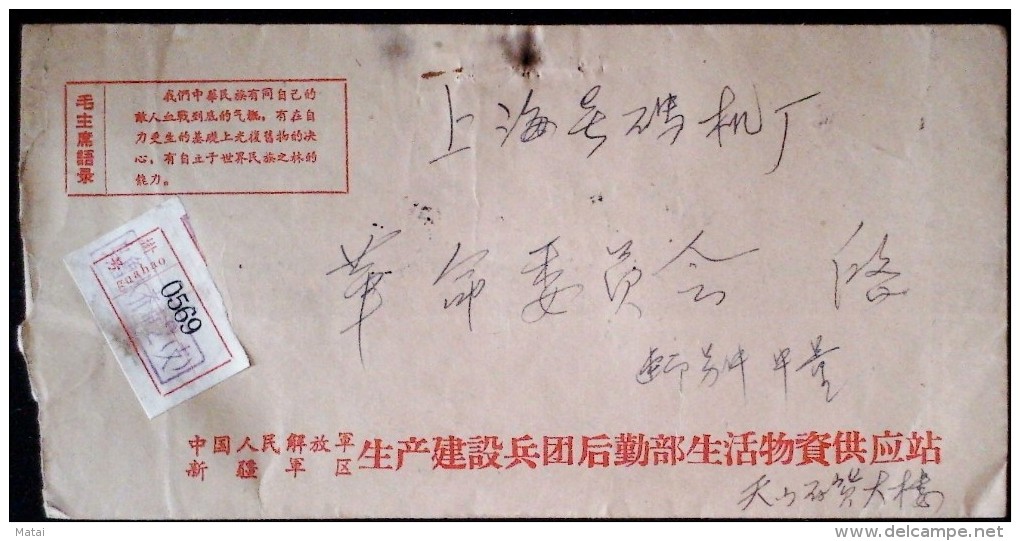 毛主席語录
我們中華民族有同自己的
敵人血戰到底的气概，有在自
力更生的基礎上光復舊物的决
心，有自立于世界民族之林的
能力。
上海 机厂
革命委员会
挂号
guahao
0569
中国人民解放軍
新疆軍区
生产建設兵团后勤部生活物資供应站
大楼
Matai
delcampe.net